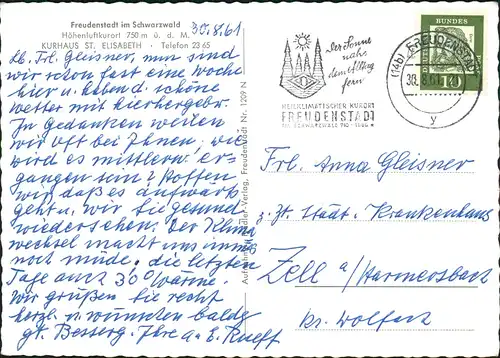 Freudenstadt im Schwarzwald
Höhenluftkurort 750 m ü. d. M.
KURHAUS ST. ELISABETH · Telefon 23 65
30.8.61
Lb. Frl. Gleisner, nun sind
wir schon fast eine Woche
hier u. haben d. schöne
Wetter mit hierhergebr.
In Gedanken weilen
wir oft bei Ihnen, wie
wird es mittlern er-
gangen sein? Hoffen
wir, daß es aufwärts
geht u. wir Sie gesund
wiedersehen. Der Klima
wechsel macht uns immer
noch müde. die letzten
Tage auch 30° Wärme.
Wir grüßen Sie recht
herzl. u. wünschen baldg
gt. Besserg. Ihre a. E. Rueff
Aufnahme Verlag, Freudenstadt Nr. 1209 N
Der Sonne
nah,
dem Alltag
fern
HEILKLIMATISCHER KURORT
FREUDENSTADT
IM SCHWARZWALD 740-1000 m
(14b) FREUDENSTADT
30.8.61
y
BUNDES
10
Frl. Anna Gleisner
z. Zt. Städt. Krankenhaus
Zell a/Harmersbach
Kr. Wolfach